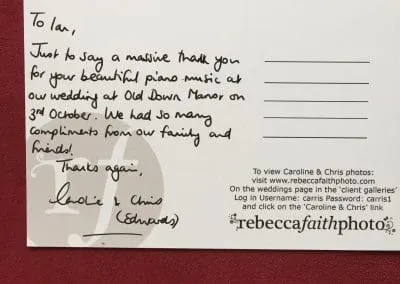 To Ian,
Just to say a massive thank you
for your beautiful piano music at
our wedding at Old Down Manor on
3rd October. We had so many
compliments from our family and
friends!
Thanks again,
Caroline & Chris
(Edwards)
To view Caroline & Chris photos:
visit www.rebeccafaithphoto.com
On the weddings page in the 'client galleries'
Log in Username: carris Password: carris1
and click on the 'Caroline & Chris' link
rebeccafaithphoto
rf